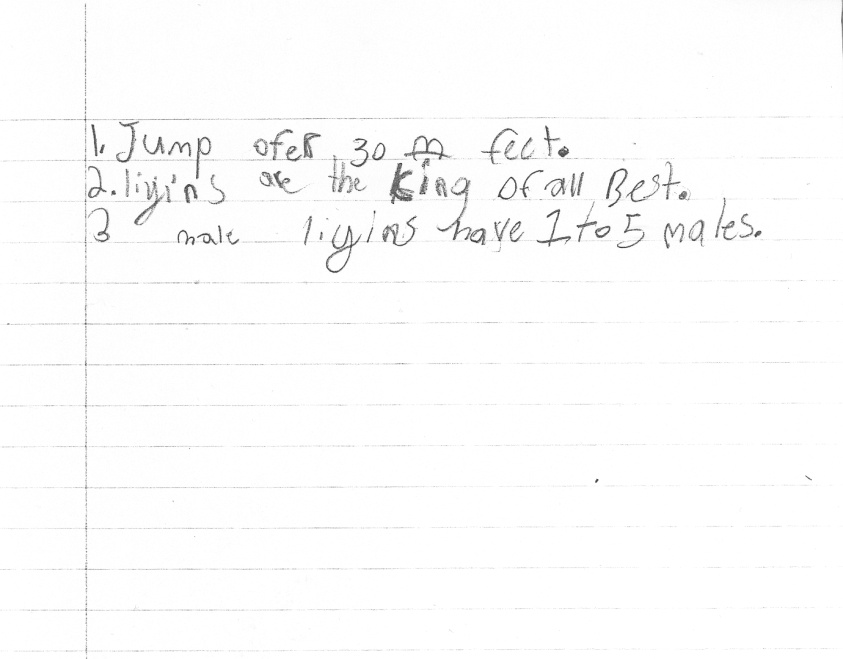 1. Jump ofer 30 m feet.
2. liyins are the king of all Best.
3 male liyins have 1 to 5 males.